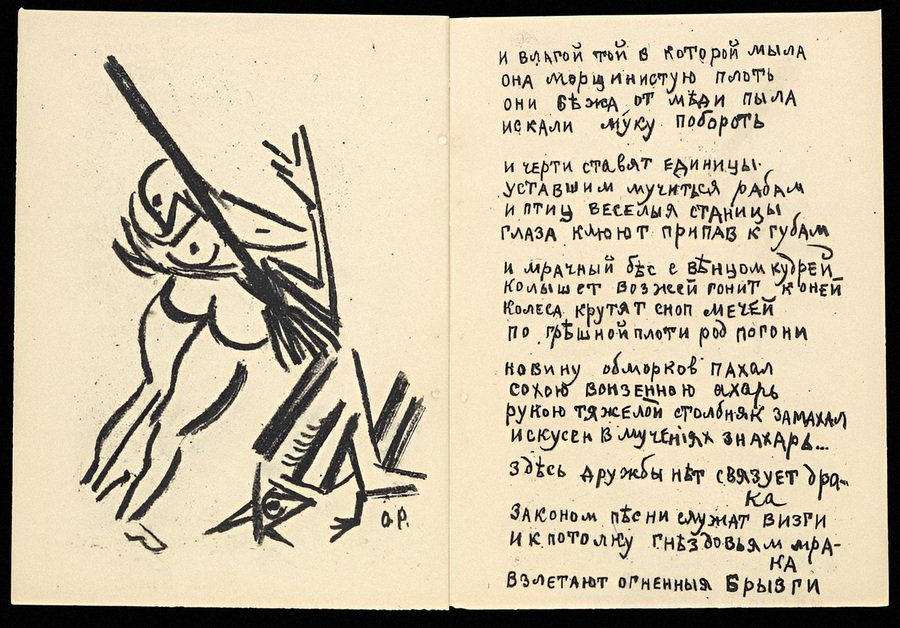 О.Р.
и влагой той в которой мыла
она морщинистую плоть
они бѣжа от мѣди пыла
искали му́ку побороть
и черти ставят единицы.
уставшим мучиться рабам
и птиц веселыя станицы
глаза клюют припав к губам
и мрачный бѣс с вѣнцом кудрей
колышет возжей гонит коней
колеса крутят сноп мечей
по грѣшной плоти род погони
новину обмороков пахал
сохою вонзенною ахарь
рукою тяжелой столбняк замахал
искусен в мученіях знахарь...
здѣсь дружбы нѣт связует дра-
ка
законом пѣсни служат визги
и к потолку гнѣздовьям мра-
ка
взлетают огненныя брызги